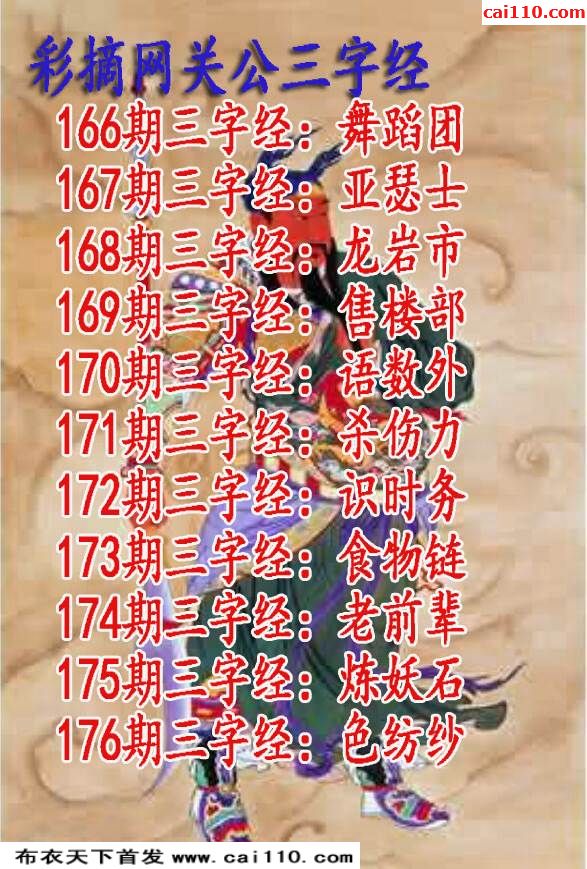 cai110.com
彩摘网关公三字经
166期三字经：舞蹈团
167期三字经：亚瑟士
168期三字经：龙岩市
169期三字经：售楼部
170期三字经：语数外
171期三字经：杀伤力
172期三字经：识时务
173期三字经：食物链
174期三字经：老前辈
175期三字经：炼妖石
176期三字经：色纺纱
布衣天下首发 www.cai110.com